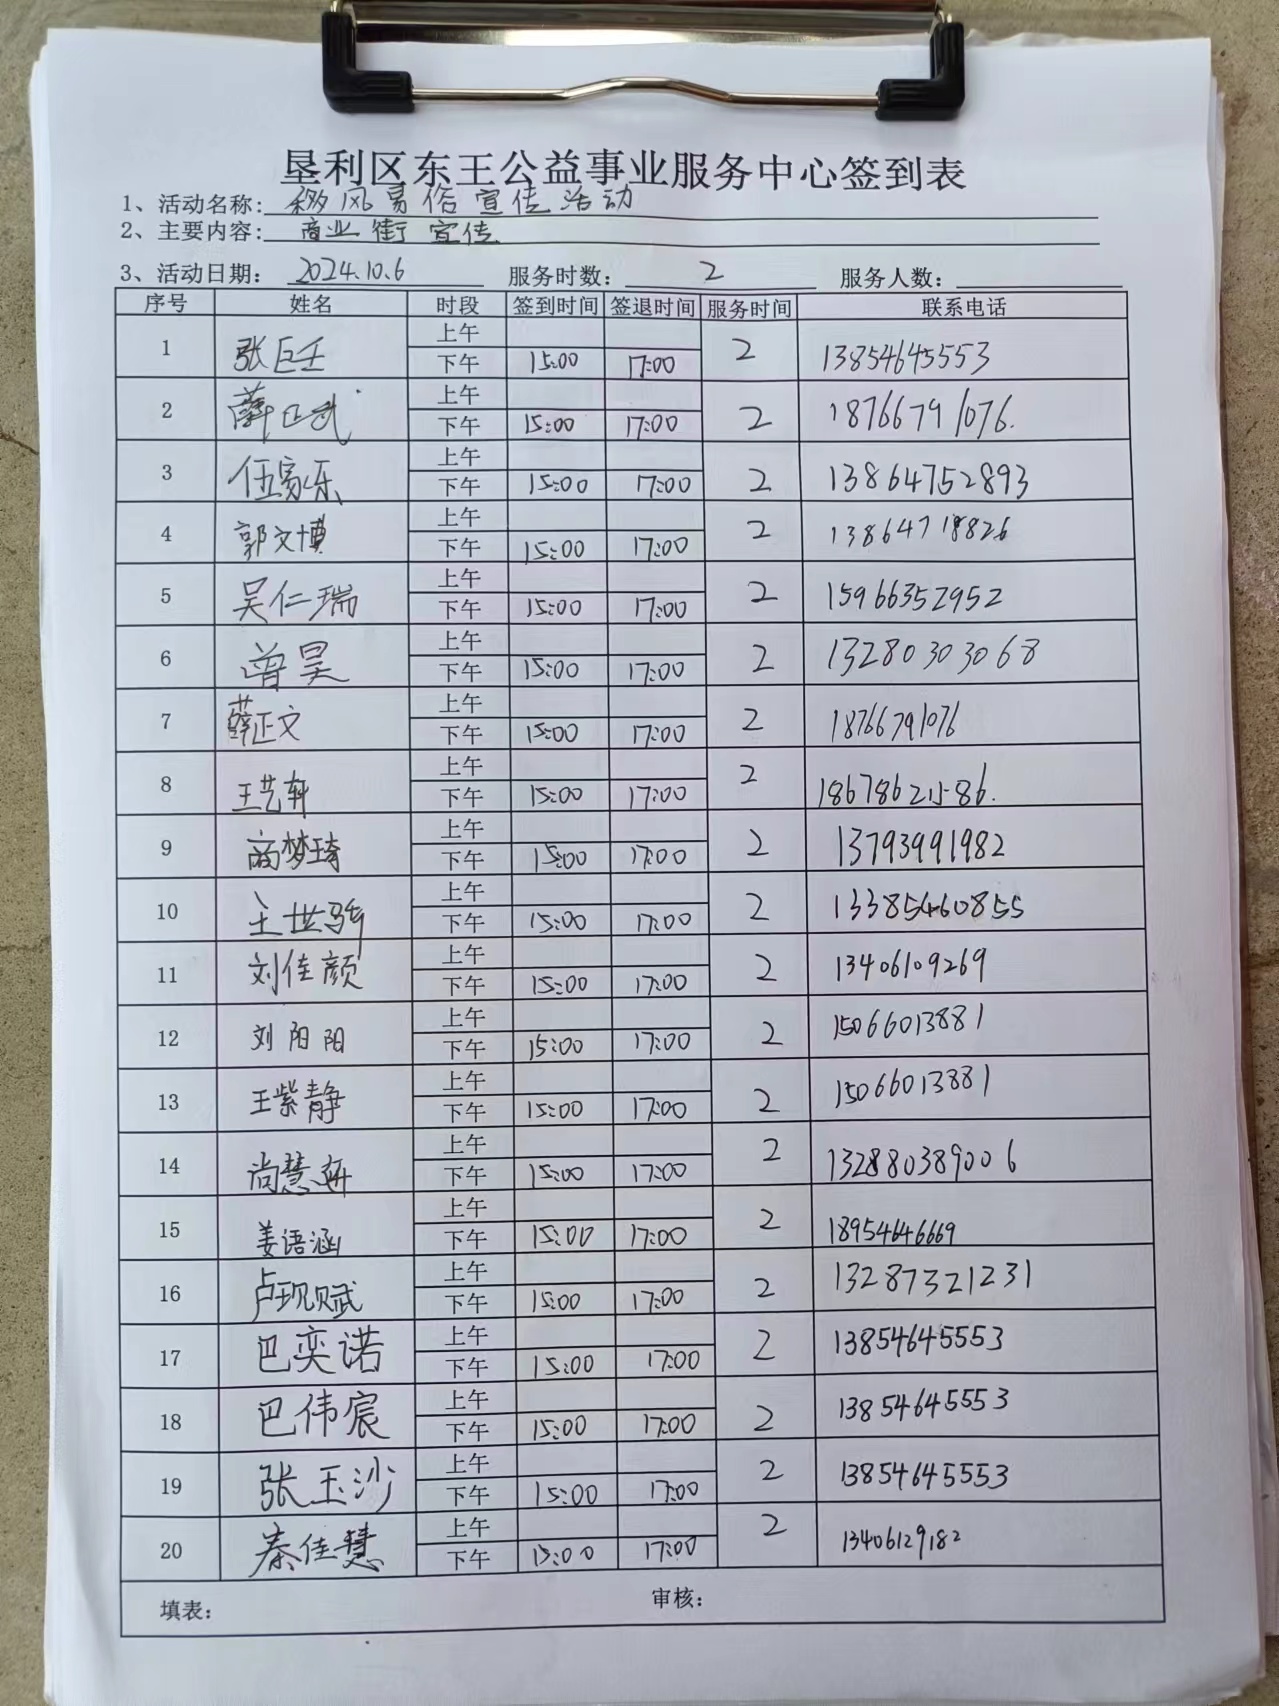 垦利区东王公益事业服务中心签到表
1、活动名称: 移风易俗宣传活动
2、主要内容: 商业街宣传
3、活动日期: 2024.10.6 服务时数: 2 服务人数:
序号 姓名 时段 签到时间 签退时间 服务时间 联系电话
1 张巨壬 上午 2 13854645553
下午 15:00 17:00
2 薛正武 上午 2 18766791076.
下午 15:00 17:00
3 伍家乐 上午 2 13864752893
下午 15:00 17:00
4 郭文博 上午 2 13864718826
下午 15:00 17:00
5 吴仁瑞 上午 2 15966352952
下午 15:00 17:00
6 曾昊 上午 2 13280303068
下午 15:00 17:00
7 薛正文 上午 2 18766791076
下午 15:00 17:00
8 王艺轩 上午 2
下午 15:00 17:00
9 商梦琦 上午 2 13793991982
下午 15:00 17:00
10 王世骅 上午 2 13385460855
下午 15:00 17:00
11 刘佳颜 上午 2 13406109269
下午 15:00 17:00
12 刘阳阳 上午 2 15066013881
下午 15:00 17:00
13 王紫静 上午 2 15066013881
下午 15:00 17:00
14 尚慧妍 上午 2 132880389006
下午 15:00 17:00
15 姜语涵 上午 2 18954646669
下午 15:00 17:00
16 卢现赋 上午 2 13287321231
下午 15:00 17:00
17 巴奕诺 上午 2 13854645553
下午 15:00 17:00
18 巴伟宸 上午 2 13854645553
下午 15:00 17:00
19 张玉沙 上午 2 13854645553
下午 15:00 17:00
20 秦佳慧 上午 2 13406129182
下午 15:00 17:00
填表: 审核: